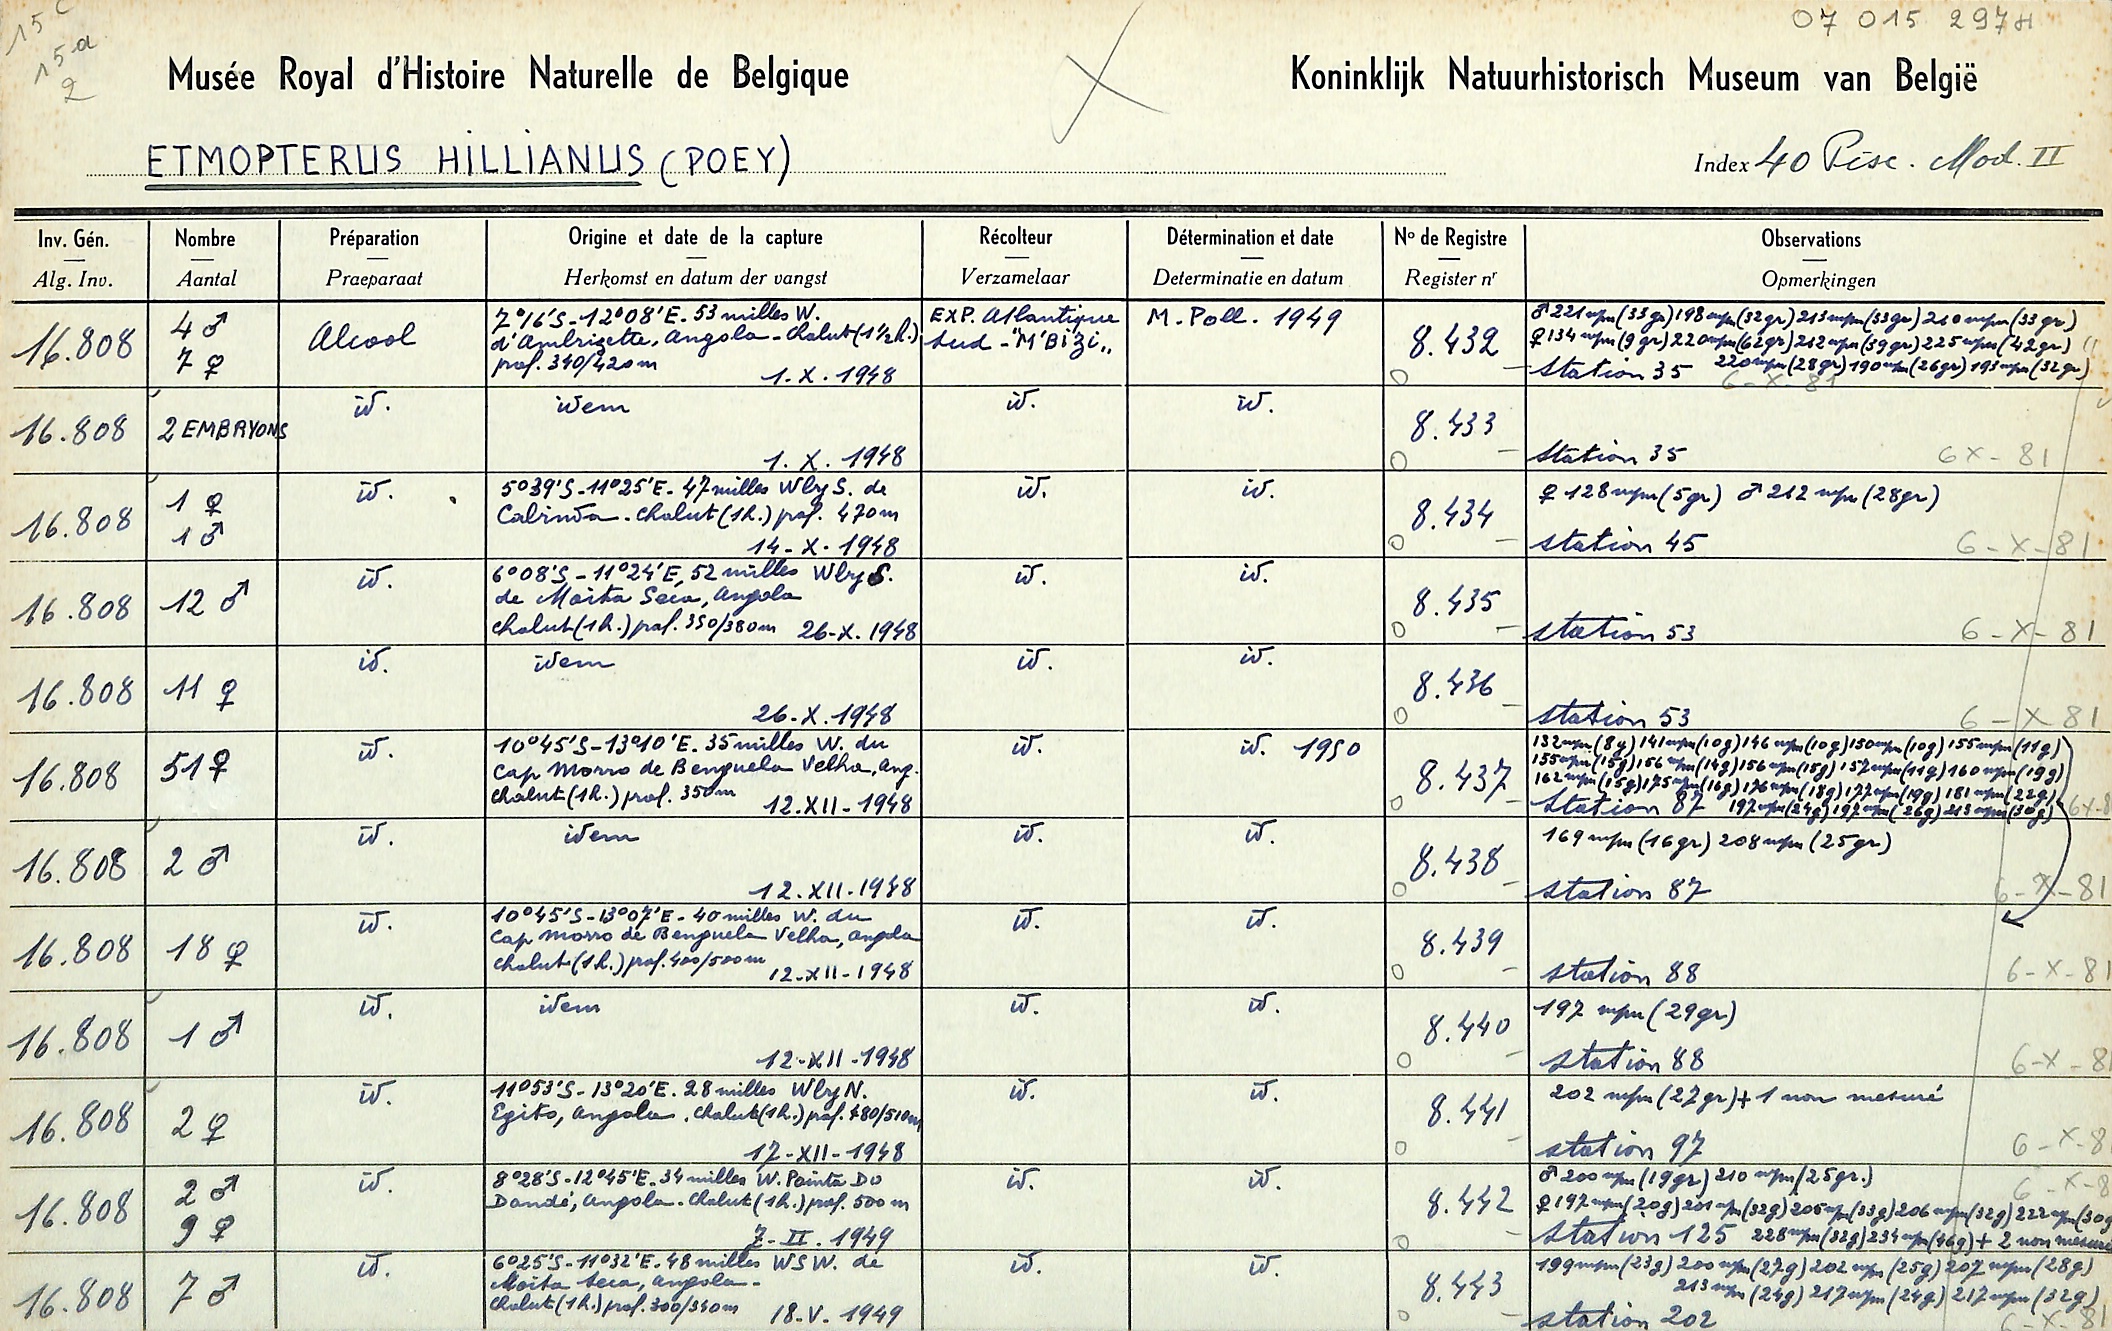 15 c
15 a
2
07 015 297 H
Musée Royal d'Histoire Naturelle de Belgique
Koninklijk Natuurhistorisch Museum van België
ETMOPTERUS HILLIANUS (POEY)
Index 40 Pisc. Mod. II
Inv. Gén. Nombre Préparation Origine et date de la capture Récolteur Détermination et date No de Registre Observations
Alg. Inv. Aantal Praeparaat Herkomst en datum der vangst Verzamelaar Determinatie en datum Register nr Opmerkingen
16.808
4 ♂
7 ♀
Alcool
7°16'S-12°08'E. 53 milles W.
d'Ambrizette, Angola - Chalut (1 1/2 h.)
prof. 340/420m
1.X.1948
EXP. Atlantique
Sud - "M'Bizi"
M. Poll. 1949
8.432
♂ 221 m/m (33 gr) 198 m/m (32 gr) 213 m/m (33 gr) 210 m/m (33 gr)
♀ 134 m/m (9 gr) 220 m/m (62 gr) 212 m/m (39 gr) 225 m/m (42 gr)
station 35 220 m/m (28 gr) 190 m/m (26 gr) 193 m/m (32 gr)
6-X-81
16.808 2 EMBRYONS id. idem
1.X.1948
id. id. 8.433
station 35 6 X-81
16.808
1 ♀
1 ♂
id.
5°39'S-11°25'E. 47 milles WbyS. de
Cabinda. Chalut (1h.) prof. 470m
14-X-1948
id. id. 8.434
♀ 128 m/m (5 gr) ♂ 212 m/m (28 gr)
station 45 6-X-81
16.808 12 ♂ id.
6°08'S-11°24'E, 52 milles WbyS.
de Moita Seca, Angola
chalut (1h.) prof. 350/380m 26-X.1948
id. id. 8.435
station 53 6-X-81
16.808 11 ♀ id. idem
26-X.1948
id. id. 8.436
station 53 6-X-81
16.808 51 ♀ id.
10°45'S-13°10'E. 35 milles W. du
Cap Morro de Benguela Velha, Ang.
Chalut (1h.) prof. 350m 12.XII-1948
id. id. 1950 8.437
132 m/m (8g) 141 m/m (10g) 146 m/m (10g) 150 m/m (10g) 155 m/m (11g)
155 m/m (15g) 156 m/m (14g) 156 m/m (15g) 157 m/m (11g) 160 m/m (19g)
162 m/m (15g) 175 m/m (16g) 176 m/m (18g) 177 m/m (19g) 181 m/m (22g)
station 87 197 m/m (24g) 197 m/m (26g) 213 m/m (30g) 6X-8
16.808 2 ♂ id. idem
12.XII-1948
id. id. 8.438
169 m/m (16 gr) 208 m/m (25 gr)
station 87 6-X-81
16.808 18 ♀ id.
10°45'S-13°07'E - 40 milles W. du
Cap Morro de Benguela Velha, Angola
Chalut (1h.) prof. 400/500m 12-XII-1948
id. id. 8.439
station 88 6-X-81
16.808 1 ♂ id. idem
12-XII-1948
id. id. 8.440
197 m/m (29 gr)
station 88 6-X-81
16.808 2 ♀ id.
11°53'S-13°20'E. 28 milles WbyN.
Egito, Angola. Chalut (1h.) prof. 480/510m
17-XII-1948
id. id. 8.441
202 m/m (27 gr) + 1 non mesuré
station 97 6-X-8
16.808
2 ♂
9 ♀
id.
8°28'S-12°45'E. 34 milles W. Pointa Do
Dandé, Angola. Chalut (1h.) prof. 500m
7-II.1949
id. id. 8.442
♂ 200 m/m (19 gr) 210 m/m (25 gr.) 6-X-8
♀ 197 m/m (20g) 201 m/m (32g) 205 m/m (33g) 206 m/m (32g) 222 m/m (30g
station 125 228 m/m (32g) 234 m/m (46g) + 2 non mesuré
16.808 7 ♂ id.
6°25'S-11°32'E. 48 milles WSW. de
Moita Seca, Angola -
Chalut (1h.) prof. 300/340m 18.V.1949
id. id. 8.443
199 m/m (23g) 200 m/m (27g) 202 m/m (25g) 207 m/m (28g)
213 m/m (24g) 217 m/m (24g) 217 m/m (32g)
station 202 6-X-81